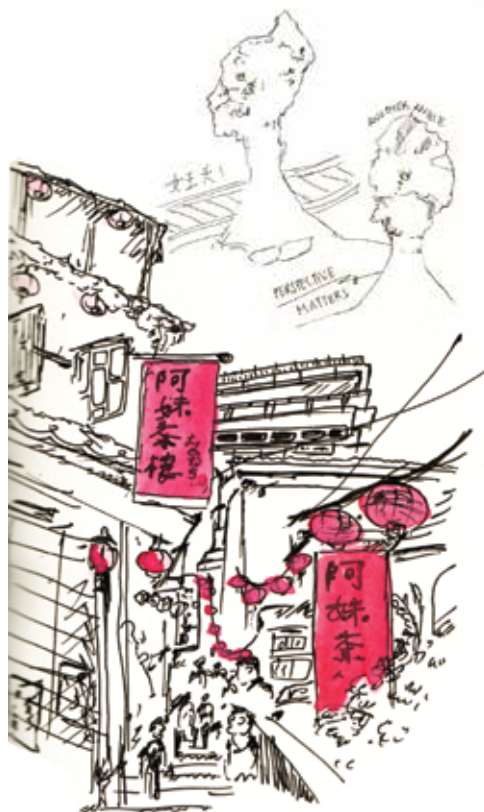 ANOTHER ANGLE
女王头!
PERSPECTIVE
MATTERS
阿妹茶樓
阿妹茶